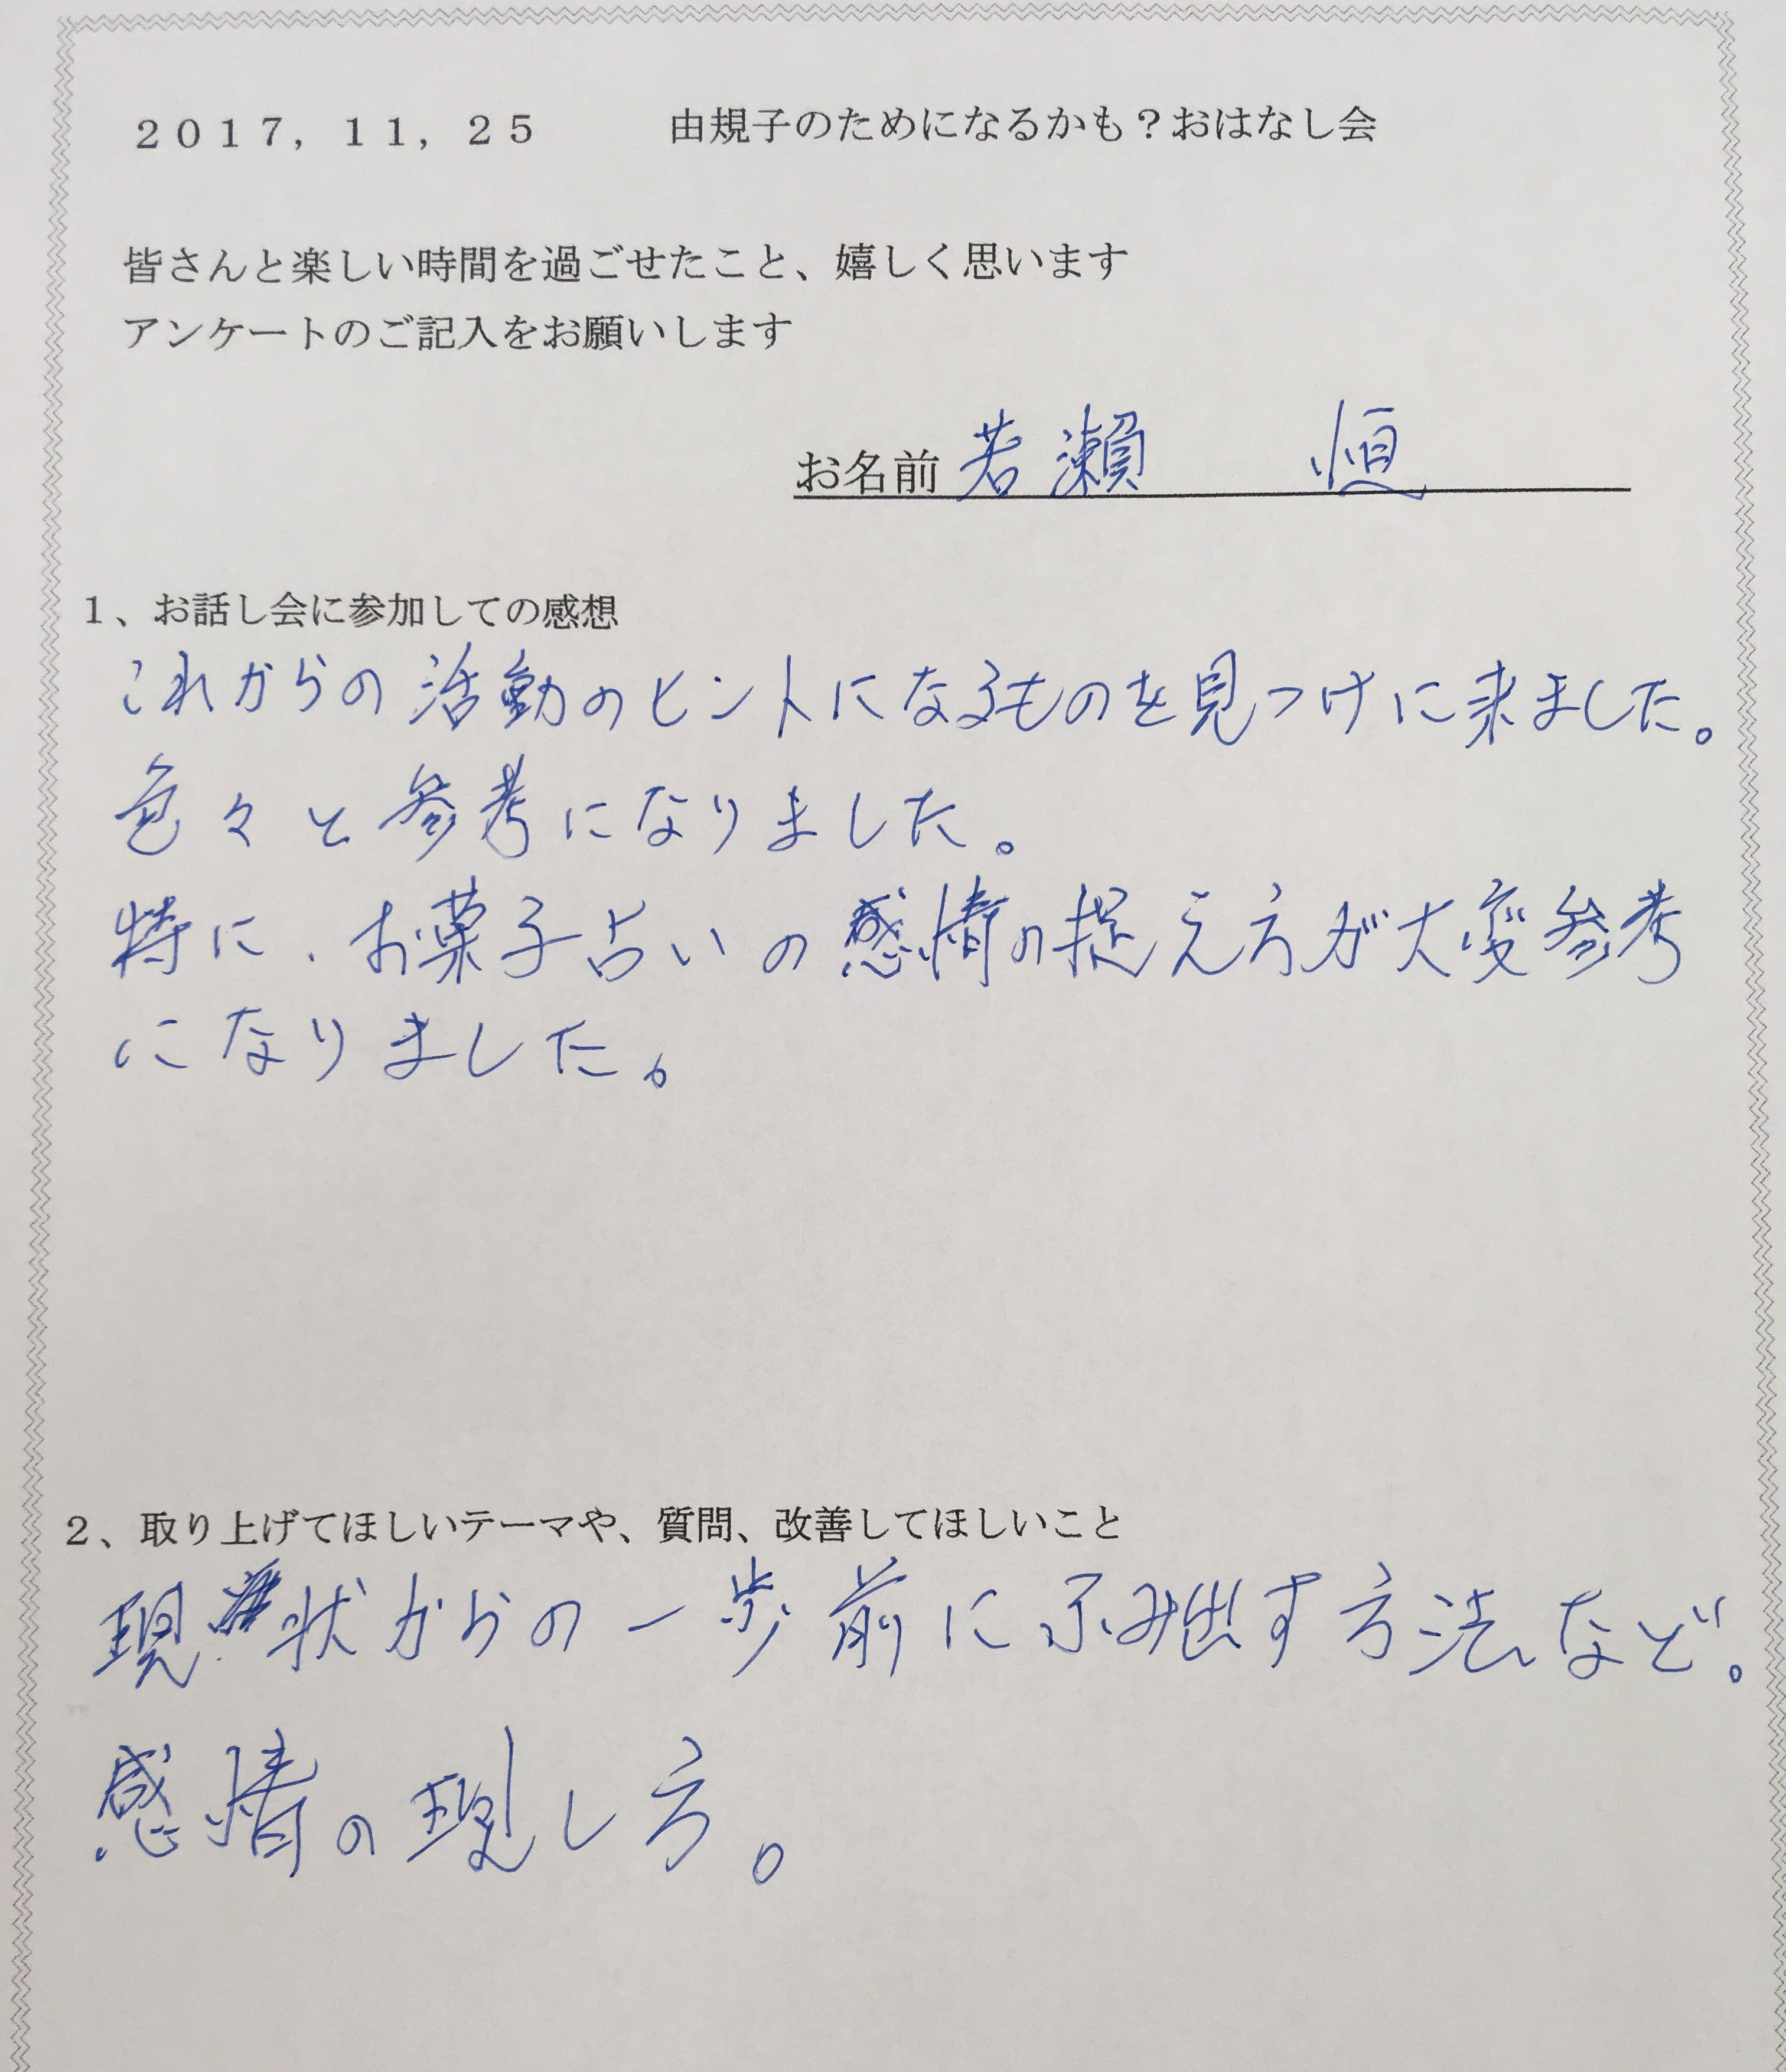 2017,11,25　由規子のためになるかも？おはなし会
皆さんと楽しい時間を過ごせたこと、嬉しく思います
アンケートのご記入をお願いします
お名前 若瀬　恒
1、お話し会に参加しての感想
これからの活動のヒントになるものを見つけに来ました。
色々と参考になりました。
特に、お菓子占いの感情の捉え方が大変参考
になりました。
2、取り上げてほしいテーマや、質問、改善してほしいこと
現状からの一歩前にふみ出す方法など。
感情の現し方。